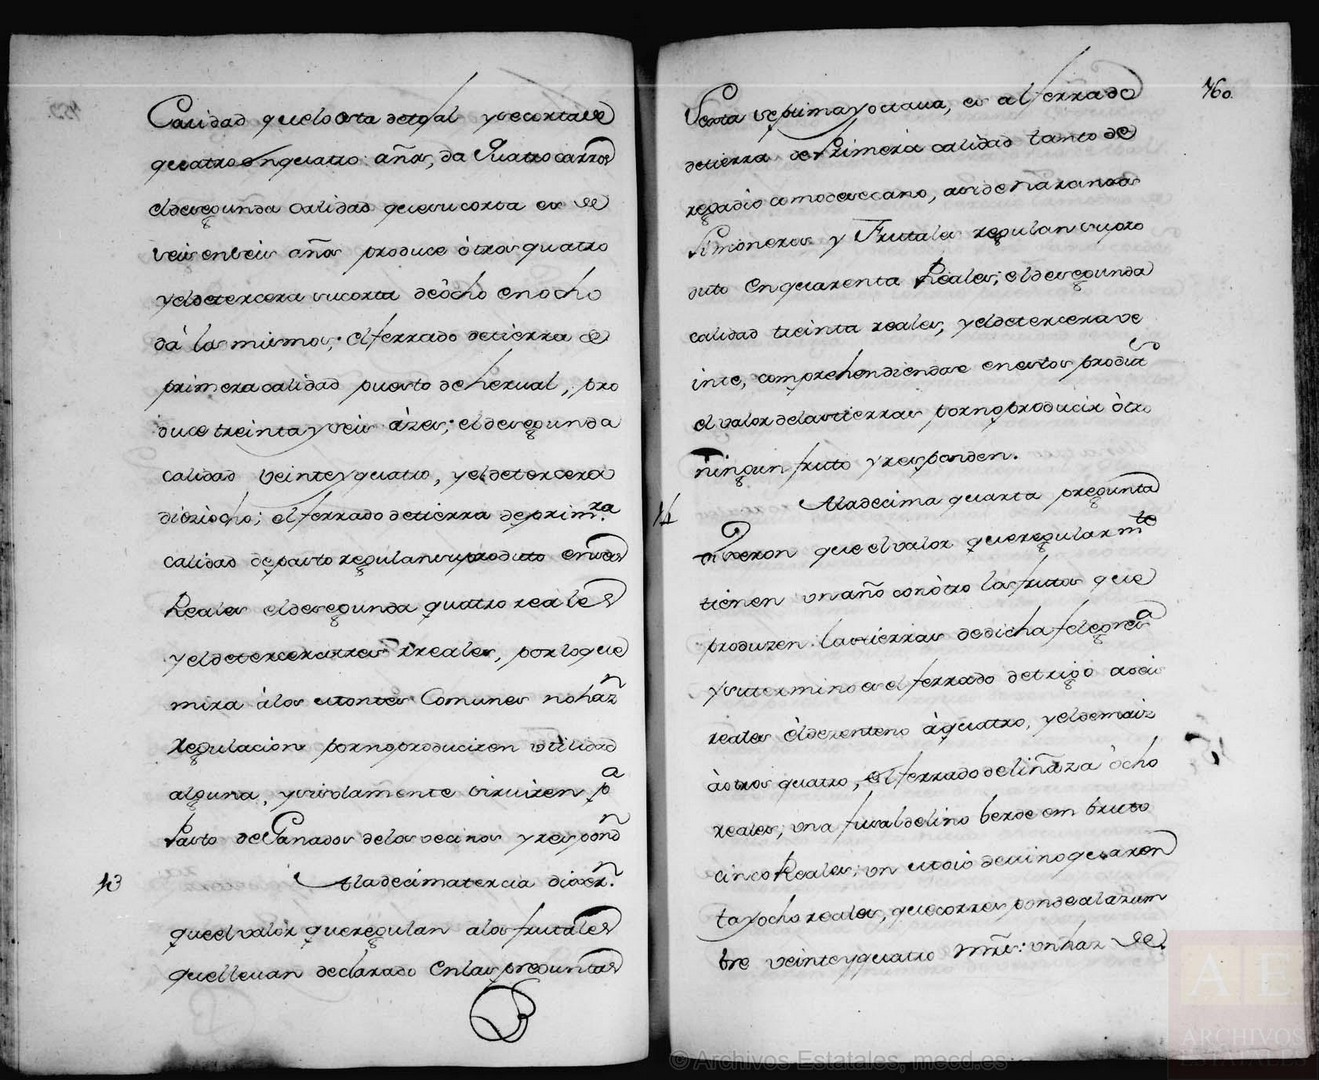 Calidad que lo esta de tojal y se corta de
quatro en quatro años, da Quatro carros
el de segunda calidad que su corta es de
seis en seis años produce ôtros quatro
y el de tercera su corta de ôcho en ocho
dá los mismos; el ferrado de tierra de
primera calidad puesto de herval, pro
duce treinta y seis âzes; el de segunda
calidad veinte y quatro, y el de tercera
diez iocho; el ferrado de tierra de prim.ra
calidad de pasto regulan su produto en seis
Reales el de segunda quatro reales
y el de tercera tres reales, por lo que
mira â los montes Comunes no haz.n
regulacion por no produciren utilidad
alguna, y solamente sirviren p.a
Pasto de Ganados de los vecinos y respond.n
13 A la decima tercia dixer.n
que el valor que regulan a los frutales
que llevan declarado en las preguntas
760.
Sexta septima y octava, es al ferrado
de tierra de Primera calidad tanto de
regadio como de secano, asi de Naranxos
Limoneros y Frutales regulan su pro
duto en quarenta Reales; el de segunda
calidad treinta reales, y el de tercera ve
inte, comprehendiendose en estos produt.os
el valor de las tierras por no producir ôtro
ningun fruto y responden.
14 A la decima quarta pregunta
dixeron que el valor que regularm.te
tienen un año con ôtro los frutos que
produzen las tierras de dicha felegres.a
y su termino es el ferrado de trigo a seis
reales êl de zenteno â quatro, y el de maiz
â otros quatro, el ferrado de linaza ôcho
reales, una fusal de lino berde em bruto
cinco Reales; un moio de vino quaren
ta y ocho reales, que corresponde al azum
bre veinte y quatro mrs: un haz de
© Archivos Estatales, mecd.es
AE
ARCHIVOS
ESTATALES